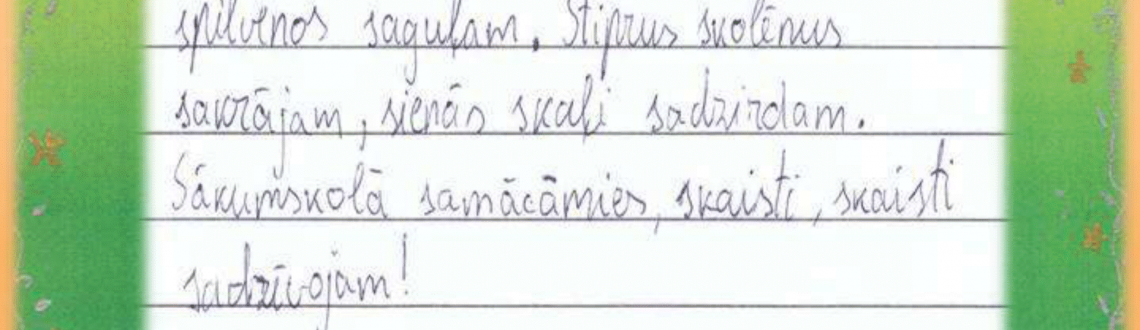 spilvenos saguļam. Stiprus skolēnus
sakrājam, sienās skaļi sadzirdam.
Sākumskolā samācāmies, skaisti, skaisti
sadzīvojam!